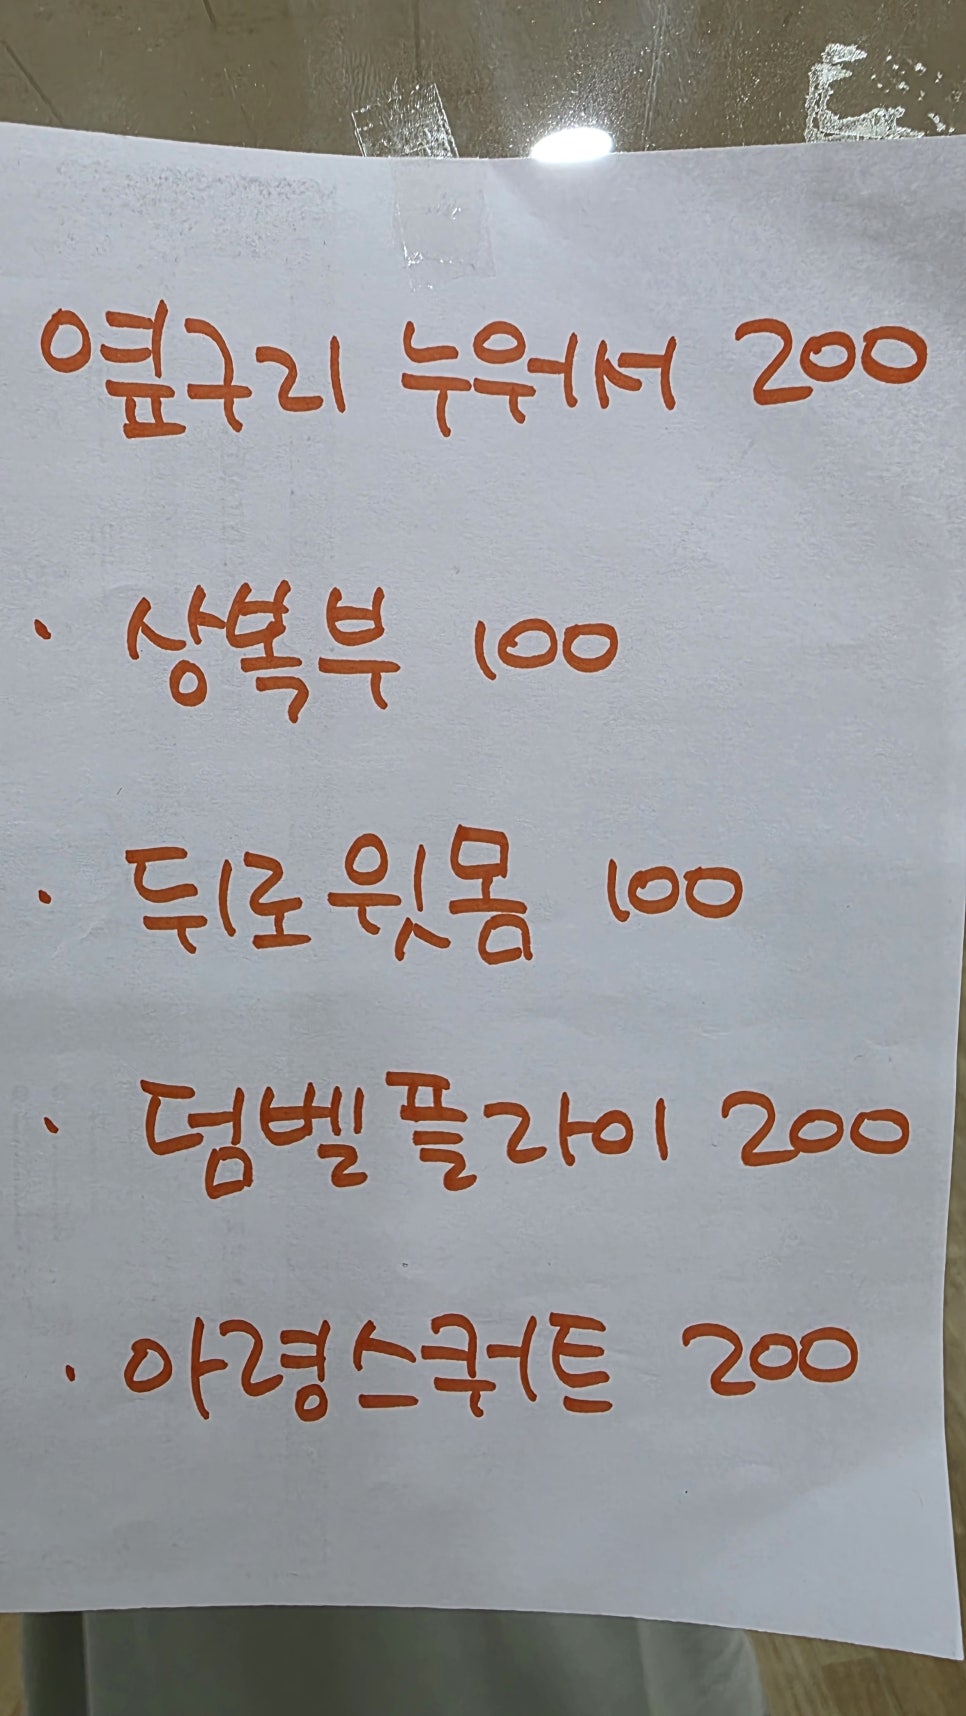 옆구리 누워서 200
· 상복부 100
· 뒤로윗몸 100
· 덤벨플라이 200
· 아령스쿼트 200